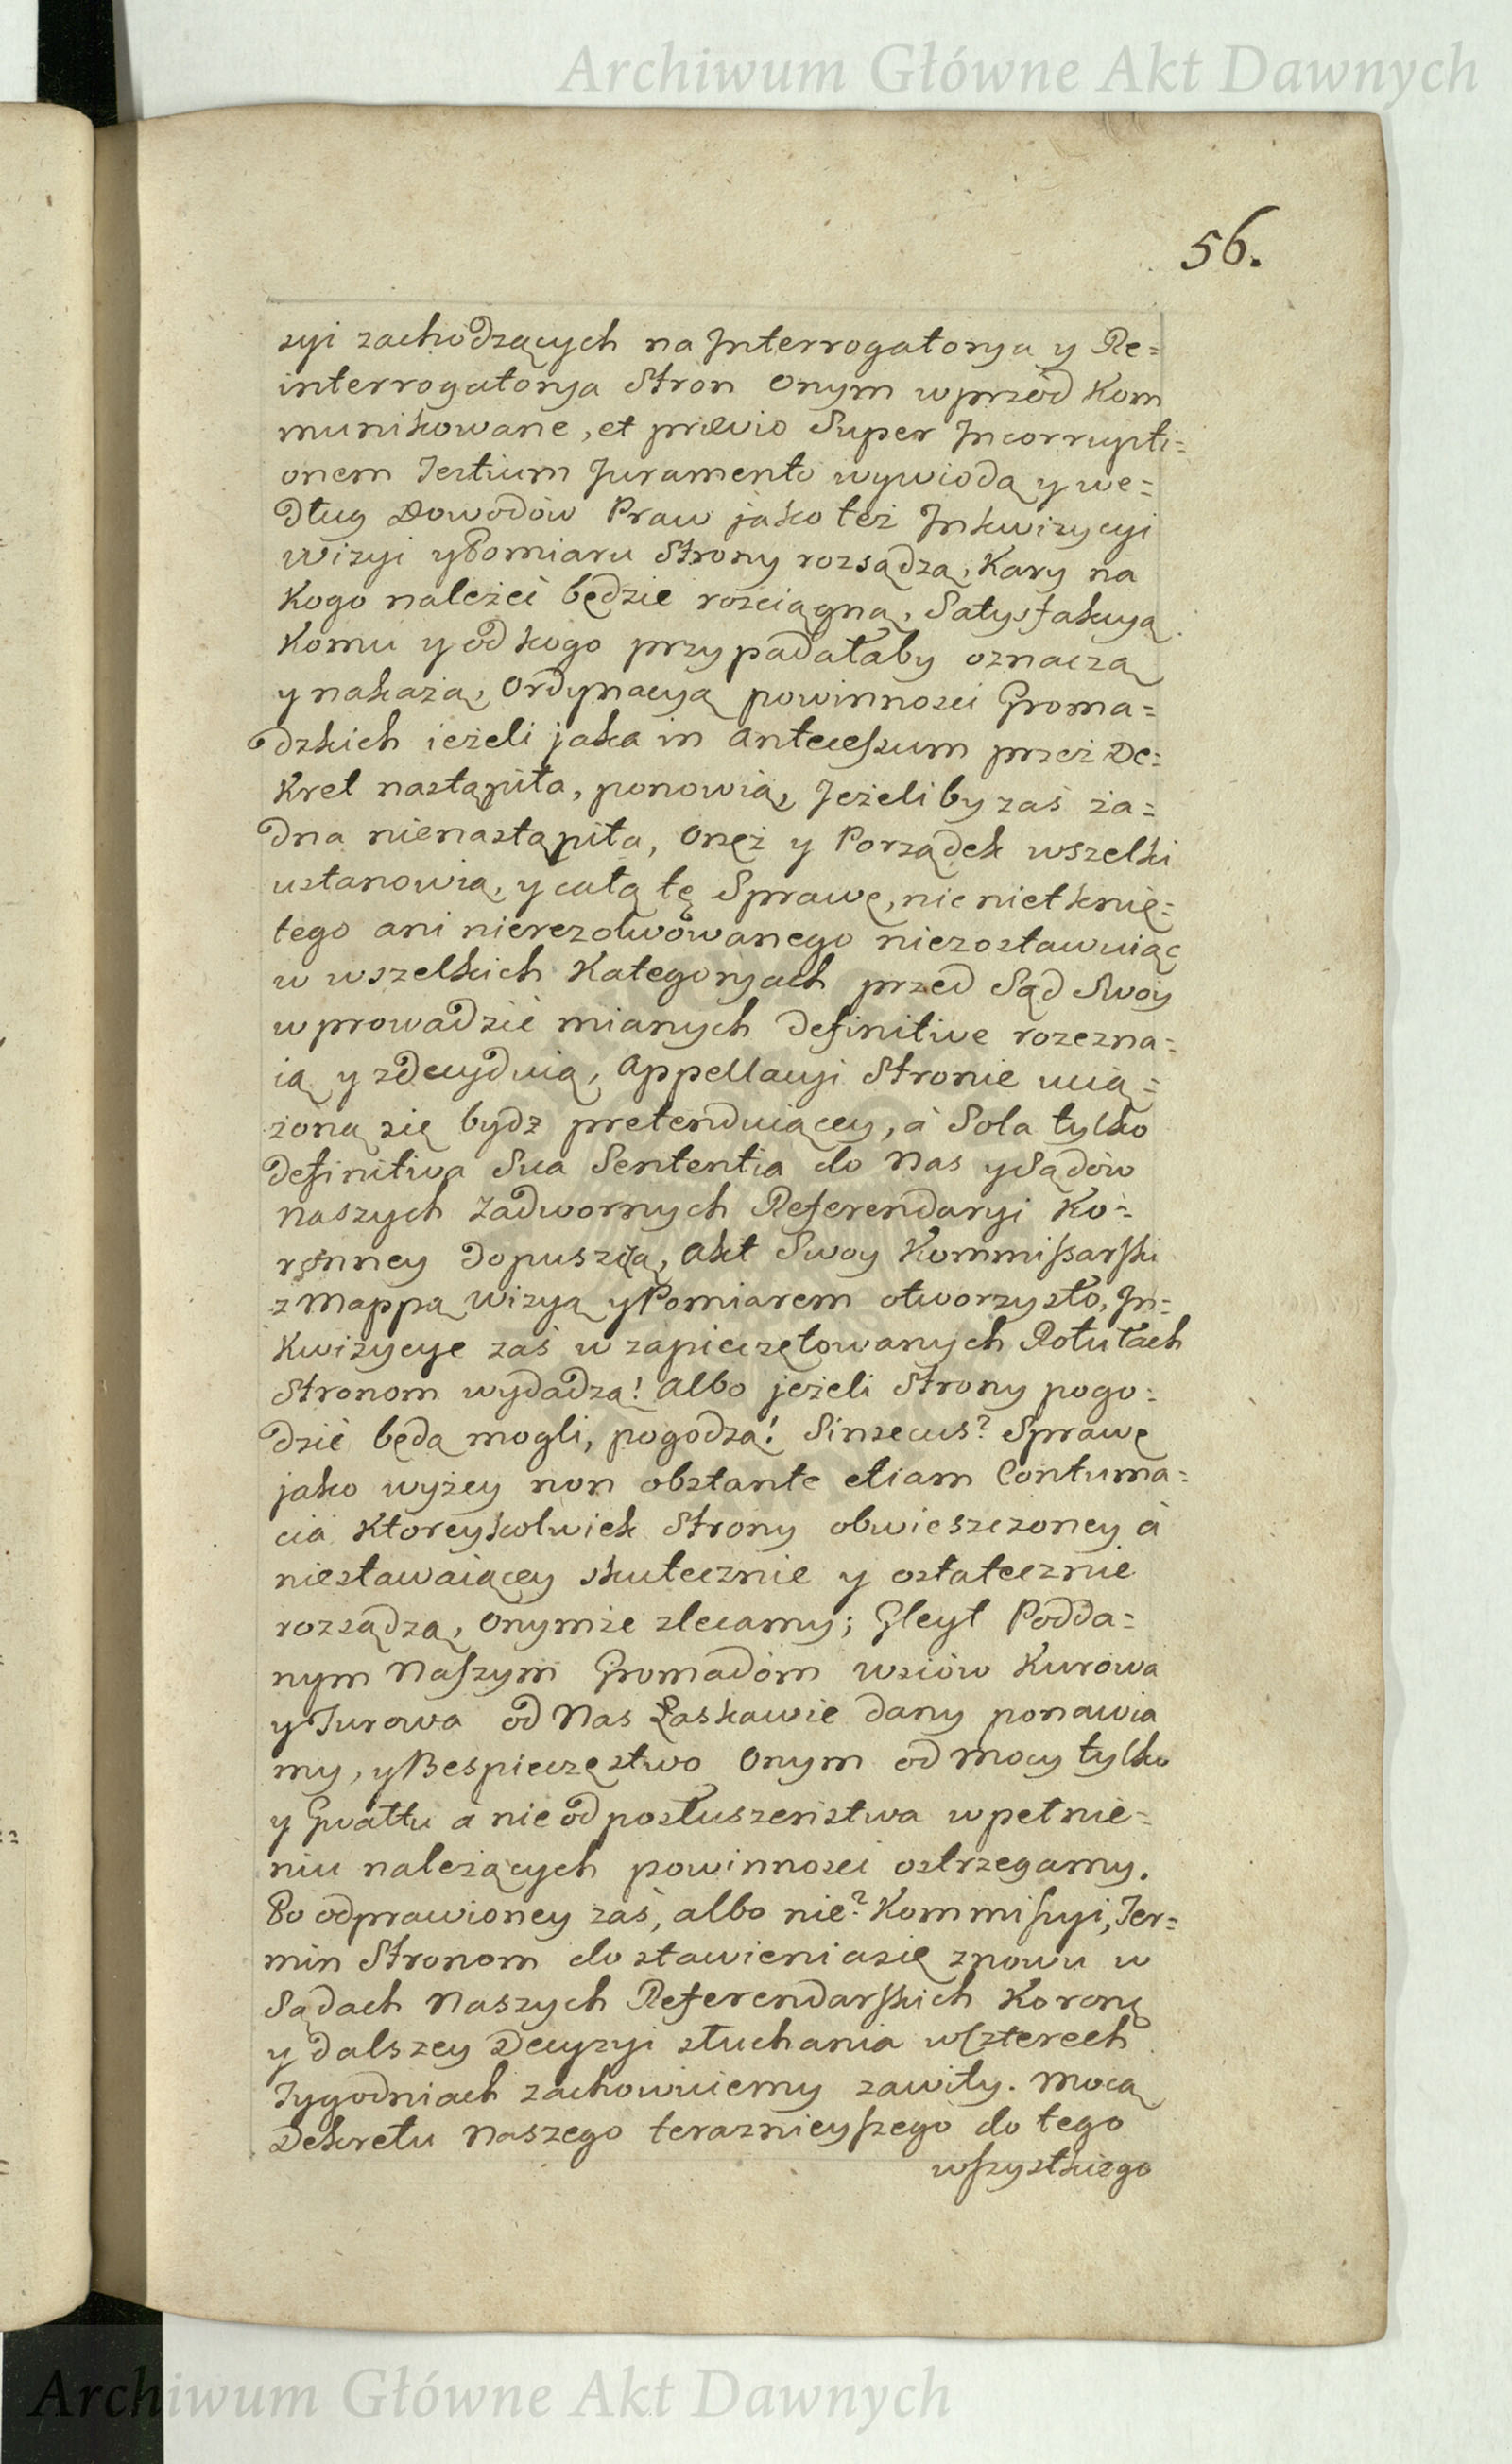 Archiwum Główne Akt Dawnych
56.
zyi zachodzących na Jnterrogatorya y Re=
interrogatorya Stron Onym wprzód Kom
munikowane, et prævio Super Jncorrupti=
onem Testium Juramento wywiodą y we=
dług Dowodów Praw jako też Jnkwizycyi
Wizyi y Pomiaru Strony rozsądzą, Kary na
Kogo należeć będzie rościągną, Satysfakcyą
Komu y od kogo przypadałaby oznaczą
y nakażą, Ordynacyą powinności Groma=
dzkich ieżeli jaka in Antecessum przez De=
kret nastąpiła, ponowią, Jeżeliby zaś ża=
dna nienastąpiła, Onęż y Porządek wszelki
ustanowią, y całą tę Sprawę, nic nietknię=
tego ani nierezolwowanego niezostawuiąc
w wszelkich Kategoryach przed Sąd Swoy
wprowadzić mianych definitive rozezna=
ią y zdecyduią, Appellacyi Stronie ucią=
żoną się bydz pretenduiącey, à Sola tylko
definitiva Sua Sententia do Nas y Sądów
Naszych Zadwornych Referendaryi Ko=
ronney dopuszczą, Akt Swoy Kommissarski
z Mappą Wizyą y Pomiarem otworzysto, Jn=
kwizycye zaś w zapieczętowanych Rotułach
Stronom wydadzą! Albo jeżeli Strony pogo=
dzić będą mogli, pogodzą! Sinsecus? Sprawę
jako wyżey non obstante etiam Contuma=
cia Któreykolwiek Strony obwieszczoney à
niestawaiącey skutecznie y ostatecznie
rozsądzą, Onymże zlecamy; Gleyt Podda=
nym Naszym Gromadom wsiów Kurowa
y Turowa od Nas Łaskawie dany ponawia
my, y Bespieczęstwo Onym od mocy tylko
y Gwałtu à nie od posłuszeństwa wpełnie=
niu należących powinności ostrzegamy.
Po odprawioney zaś, albo nie? Kommissyi, Ter=
min Stronom do stawieniasię znowu w
Sądach Naszych Referendarskich Koronę
y dalszey Decyzyi słuchania w Czterech
Tygodniach zachowuiemy zawity. Mocą
Dekretu Naszego teraznieyszego do tego
wszystkiego
Archiwum Główne Akt Dawnych